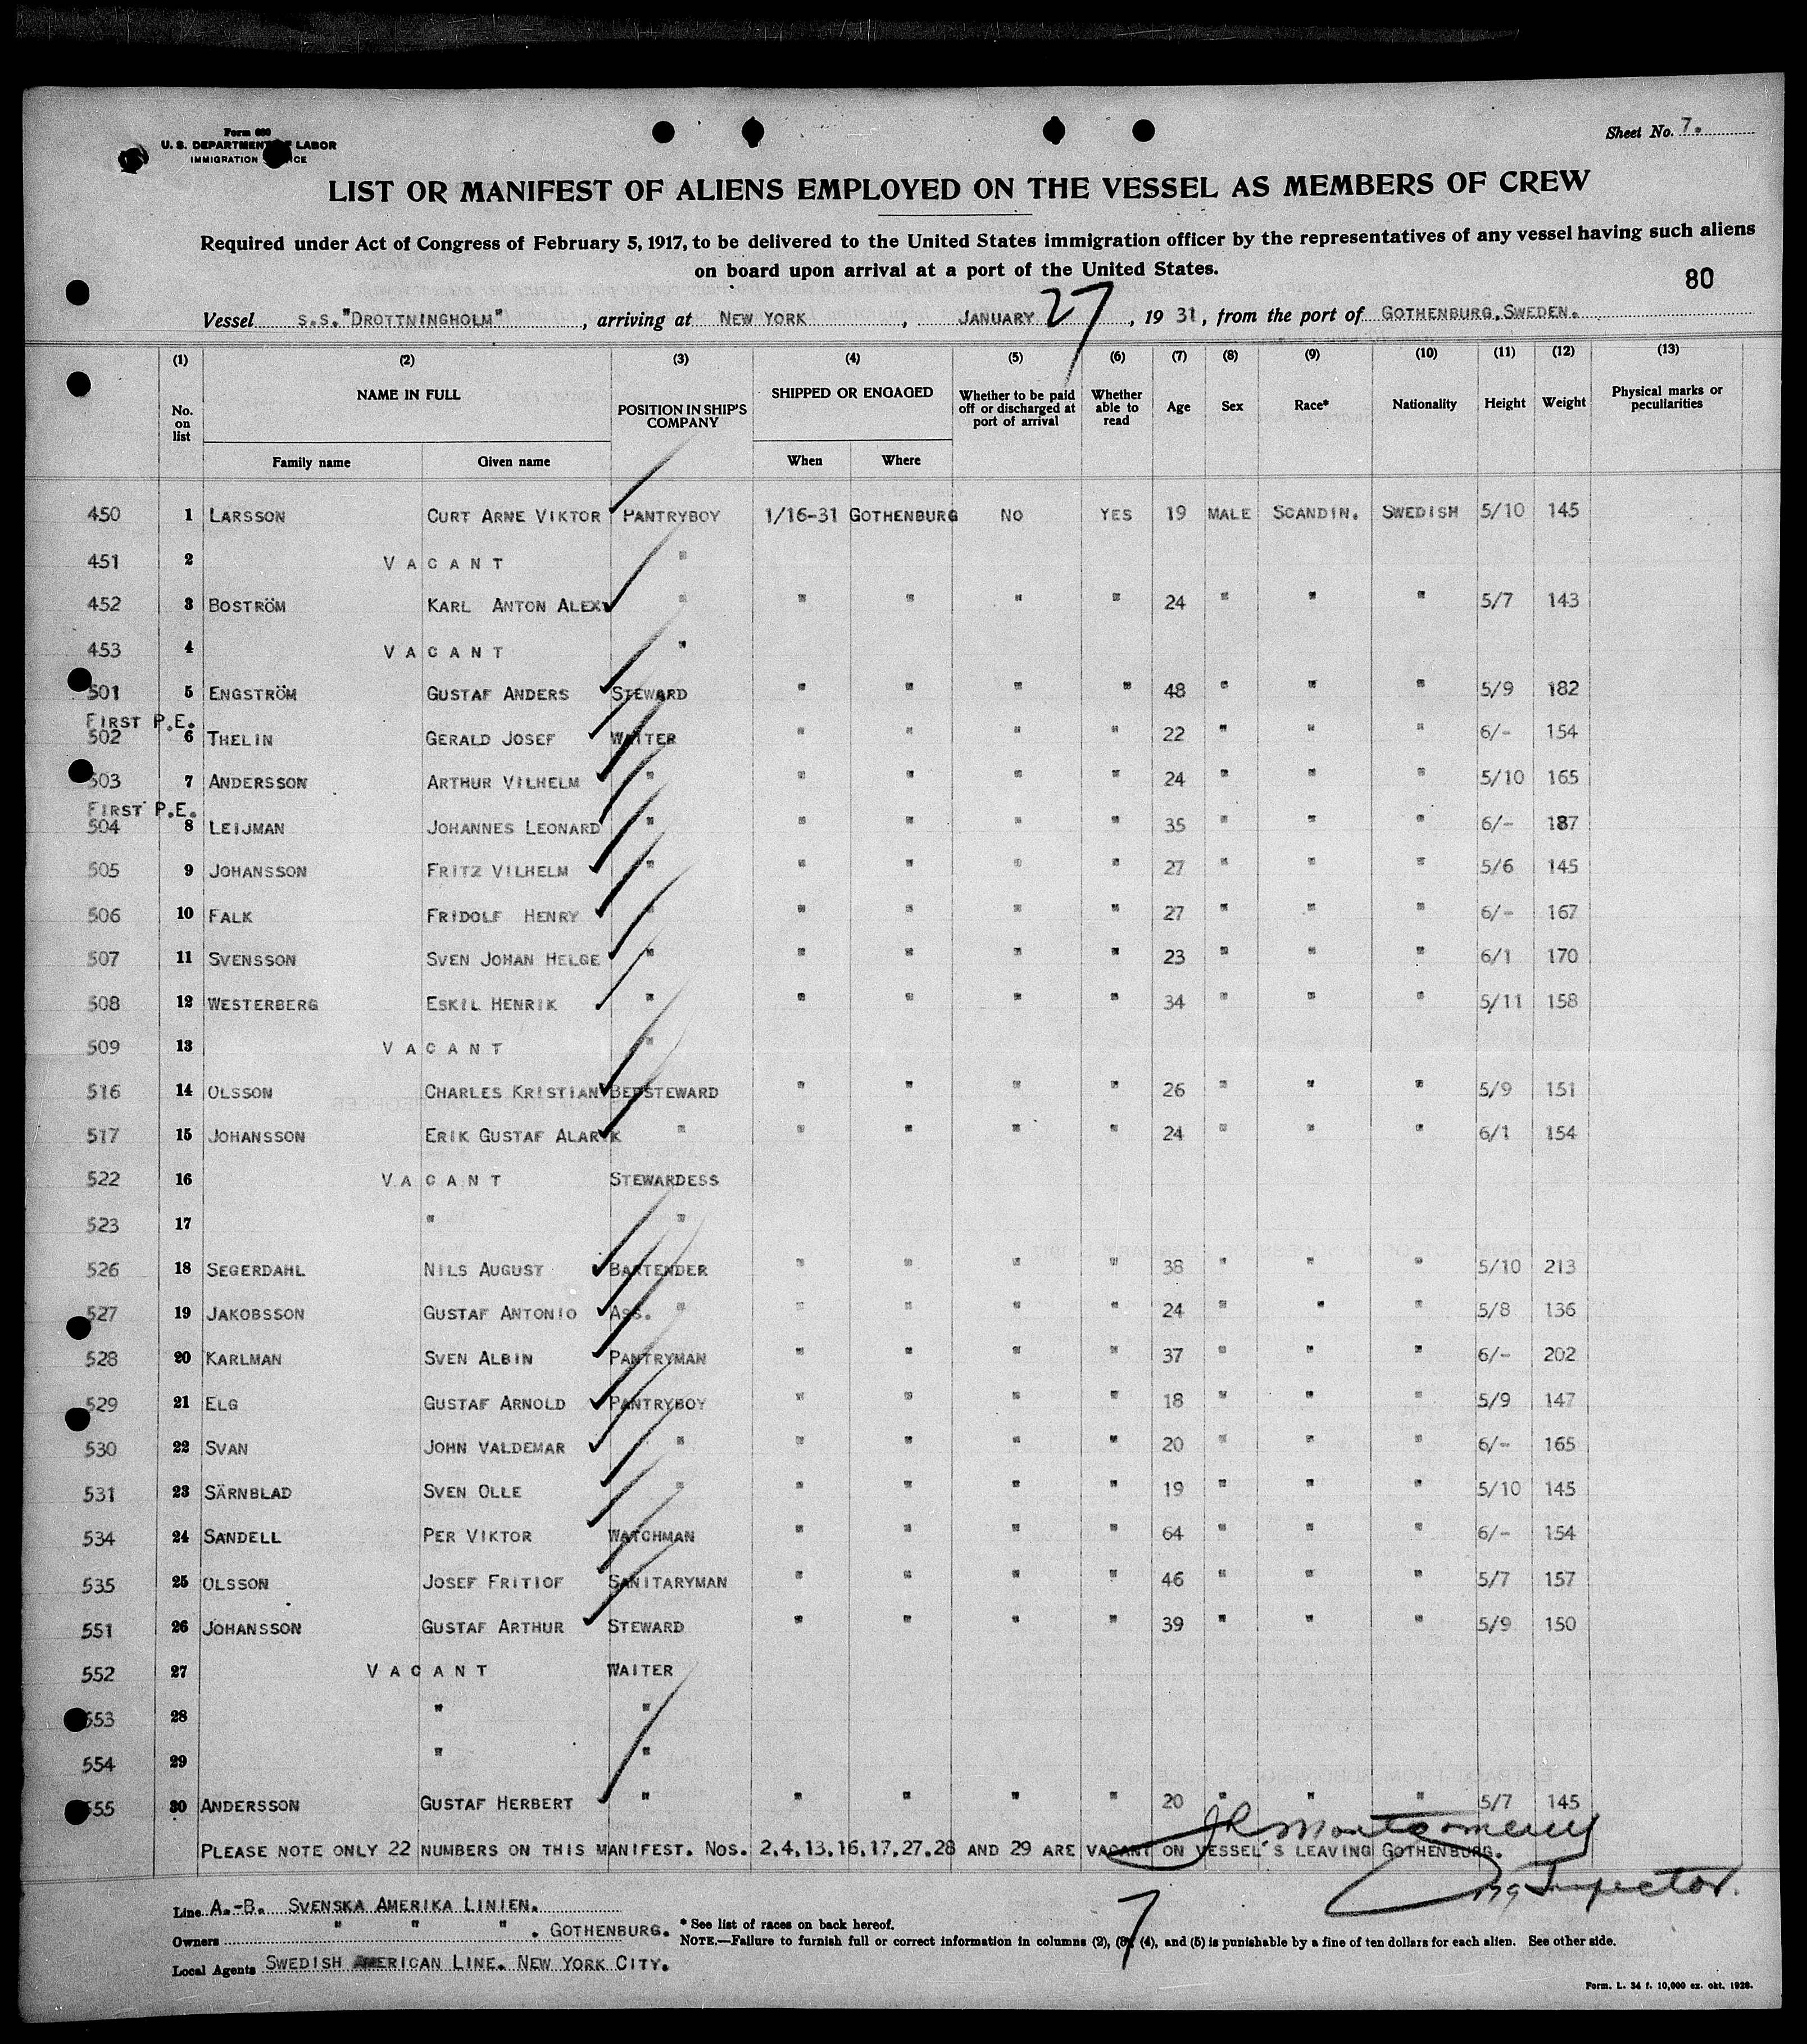 Form 680
U. S. DEPARTMENT OF LABOR
IMMIGRATION SERVICE
Sheet No. 7.
LIST OR MANIFEST OF ALIENS EMPLOYED ON THE VESSEL AS MEMBERS OF CREW
Required under Act of Congress of February 5, 1917, to be delivered to the United States immigration officer by the representatives of any vessel having such aliens
on board upon arrival at a port of the United States.
80
Vessel S.S."DROTTNINGHOLM", arriving at NEW YORK, JANUARY 27, 19 31, from the port of GOTHENBURG,SWEDEN.
(1) (2) (3) (4) (5) (6) (7) (8) (9) (10) (11) (12) (13)
No. on list NAME IN FULL POSITION IN SHIP'S COMPANY SHIPPED OR ENGAGED Whether to be paid off or discharged at port of arrival Whether able to read Age Sex Race* Nationality Height Weight Physical marks or peculiarities
Family name Given name When Where
450 1 LARSSON CURT ARNE VIKTOR PANTRYBOY 1/16-31 GOTHENBURG NO YES 19 MALE SCANDIN. SWEDISH 5/10 145
451 2 VACANT "
452 3 BOSTRÖM KARL ANTON ALEX " " " " " 24 " " " 5/7 143
453 4 VACANT "
501 5 ENGSTRÖM GUSTAF ANDERS STEWARD " " " " 48 " " " 5/9 182
FIRST P.E.
502 6 THELIN GERALD JOSEF WAITER " " " " 22 " " " 6/- 154
503 7 ANDERSSON ARTHUR VILHELM " " " " " 24 " " " 5/10 165
FIRST P.E.
504 8 LEIJMAN JOHANNES LEONARD " " " " " 35 " " " 6/- 187
505 9 JOHANSSON FRITZ VILHELM " " " " " 27 " " " 5/6 145
506 10 FALK FRIDOLF HENRY " " " " " 27 " " " 6/- 167
507 11 SVENSSON SVEN JOHAN HELGE " " " " " 23 " " " 6/1 170
508 12 WESTERBERG ESKIL HENRIK " " " " " 34 " " " 5/11 158
509 13 VACANT "
516 14 OLSSON CHARLES KRISTIAN BEDSTEWARD " " " " 26 " " " 5/9 151
517 15 JOHANSSON ERIK GUSTAF ALARIK " " " " " 24 " " " 6/1 154
522 16 VACANT STEWARDESS
523 17 " "
526 18 SEGERDAHL NILS AUGUST BARTENDER " " " " 38 " " " 5/10 213
527 19 JAKOBSSON GUSTAF ANTONIO ASS. " " " " " 24 " " " 5/8 136
528 20 KARLMAN SVEN ALBIN PANTRYMAN " " " " 37 " " " 6/- 202
529 21 ELG GUSTAF ARNOLD PANTRYBOY " " " " 18 " " " 5/9 147
530 22 SVAN JOHN VALDEMAR " " " " " 20 " " " 6/- 165
531 23 SÄRNBLAD SVEN OLLE " " " " " 19 " " " 5/10 145
534 24 SANDELL PER VIKTOR WATCHMAN " " " " 64 " " " 6/- 154
535 25 OLSSON JOSEF FRITIOF SANITARYMAN " " " " 46 " " " 5/7 157
551 26 JOHANSSON GUSTAF ARTHUR STEWARD " " " " 39 " " " 5/9 150
552 27 VACANT WAITER
553 28 " "
554 29 " "
555 30 ANDERSSON GUSTAF HERBERT " " " " " 20 " " " 5/7 145
JR Montgomery
PLEASE NOTE ONLY 22 NUMBERS ON THIS MANIFEST. NOS. 2,4,13,16,17,27,28 AND 29 ARE VACANT ON VESSEL'S LEAVING GOTHENBURG.
Inspector.
Line A.-B. SVENSKA AMERIKA LINIEN.
Owners " " " . GOTHENBURG.
* See list of races on back hereof.
NOTE.—Failure to furnish full or correct information in columns (2), (3), (4), and (5) is punishable by a fine of ten dollars for each alien. See other side.
Local Agents SWEDISH AMERICAN LINE. NEW YORK CITY.
Form. L. 34 f. 10,000 ex. okt. 1928.